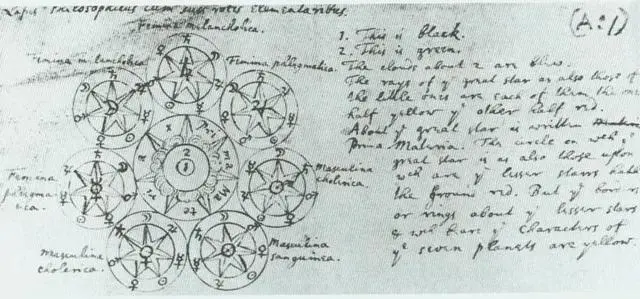 Lapis Philosophicus cum suis rotis Elementaribus.
Femina melancholica.
Femina melancholica.
Femina phlegmatica.
Femina
phlegma
tica.
Masculina
cholerica.
Masculina
cholerica.
Masculina
sanguinea.
2
1
(A:1)
1. This is black.
2. This is green.
The clouds about 2 are blew.
The rays of yᵉ great star as also those of
the little ones are each of them the one
half yellow yᵉ other half red.
About yᵉ great star is written
Prima Materia. The circle on wᶜʰ yᵉ
great star is as also those upon
wᶜʰ are yᵉ lesser starrs hath
the ground red. But yᵉ borders
or rings about yᵉ lesser stars
& wᶜʰ bear yᵉ characters of
yᵉ seven planets are yellow.